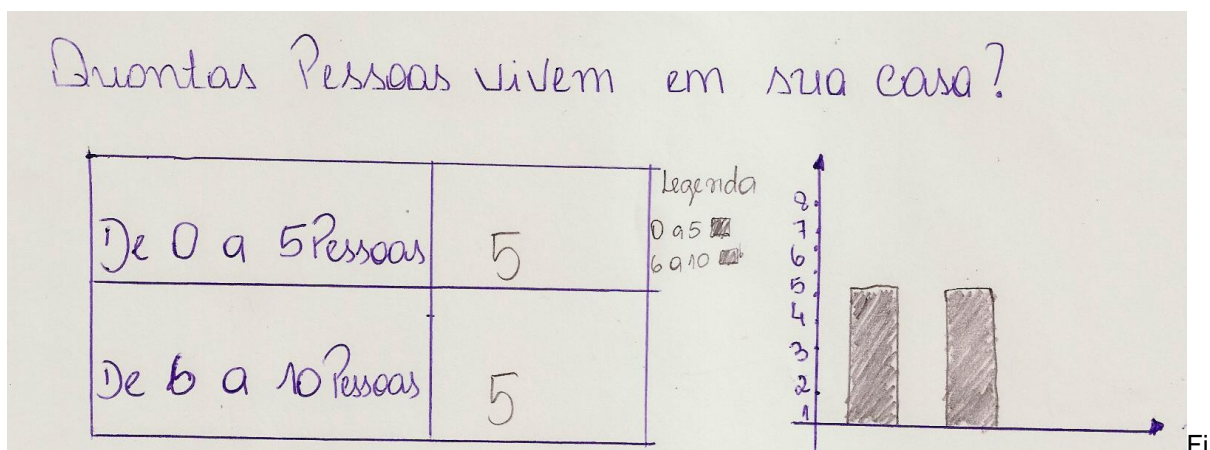 Quantas Pessoas vivem em sua casa?
De 0 a 5 Pessoas 5
De 6 a 10 Pessoas 5
Legenda
0 a 5
6 a 10
8
7
6
5
4
3
2
1
Fi